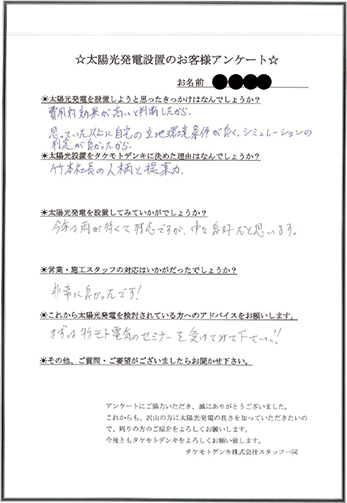 ☆太陽光発電設置のお客様アンケート☆
お名前 ●●●●
☀太陽光発電を設置しようと思ったきっかけはなんでしょうか?
費用対効果が高いと判断したから.
思っていた以上に自宅の立地環境条件が良く,シミュレーションの
判定が良かったから.
☀太陽光設置をタケモトデンキに決めた理由はなんでしょうか?
竹本社長の人柄と提案力.
☀太陽光発電を設置してみていかがでしょうか?
今年は雨が多くて残念ですが、中々良好だと思います。
☀営業・施工スタッフの対応はいかがだったでしょうか?
非常に良かったです!
☀これから太陽光発電を検討されている方へのアドバイスをお願いします。
まずはタケモト電気のセミナーを受けてみて下さい!!
☀その他、ご質問・ご要望がございましたらお聞かせ下さい。
アンケートにご協力いただき、誠にありがとうございました。
これからも、沢山の方に太陽光発電の良さを知っていただきたい
ので、周りの方のご紹介をよろしくお願いします。
今後ともタケモトデンキをよろしくお願い致します。
タケモトデンキ株式会社スタッフ一同